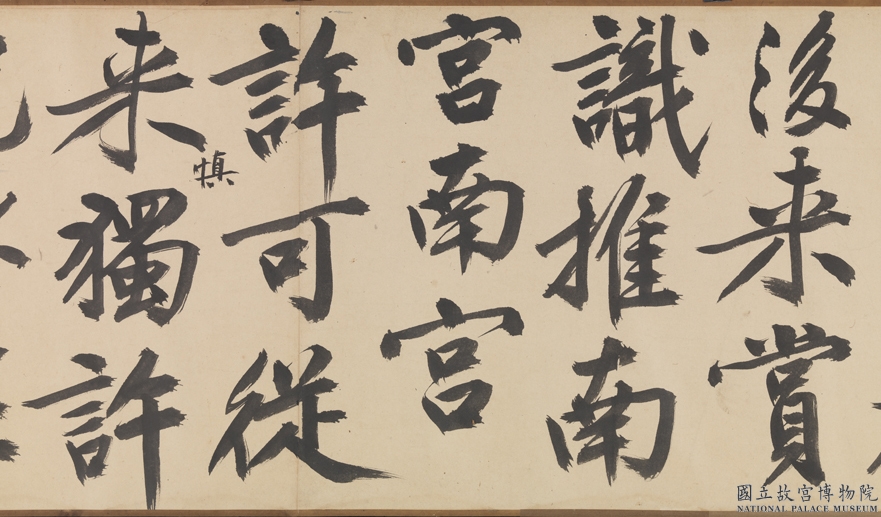 後来賞
識推南
宮南宮
許可從
慎
来獨許
國立故宮博物院
NATIONAL PALACE MUSEUM